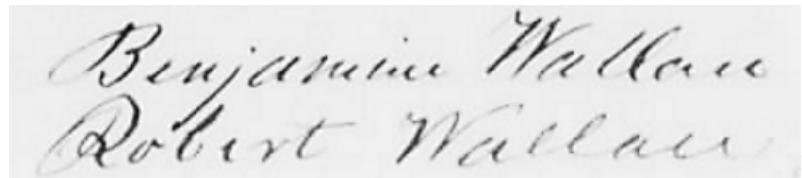 Benjamine Wallace
Robert Wallace